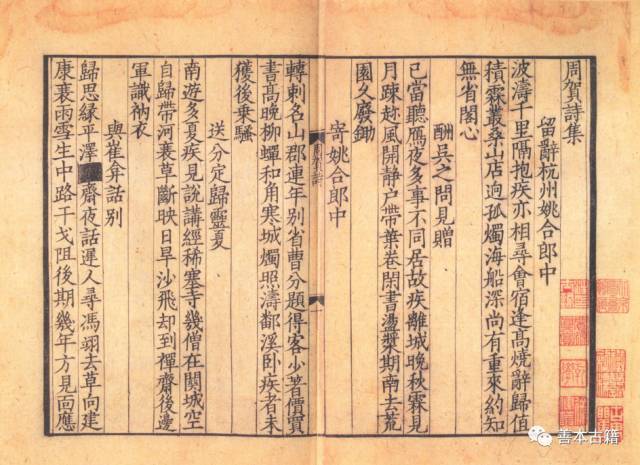 周賀詩集
留辭杭州姚合郎中
波濤千里隔抱疾亦相尋會宿逢高燒辭歸值
積霖叢桑山店迥孤燭海船深尚有重來約知
無省閣心
酬吳之問見贈
已當聽鴈夜多事不同居故疾離城晚秋霖見
月踈趁風開静户帶葉卷閑書盪槳期南去荒
園久廢鋤
寄姚合郎中
轉刺名山郡連年别省曹分題得客少著價買
書高晚柳蟬和角寒城燭照濤鄱溪卧疾者未
獲後乘騷
送分定歸靈夏
南遊多夏疾見說講經稀塞寺幾僧在關城空
自歸帶河衰草斷映日旱沙飛却到禪齋後邊
軍識衲衣
與崔弇話别
歸思緣平澤齋夜話遲人尋馮翊去草向建
康衰雨雪生中路干戈阻後期幾年方見面應
善本古籍